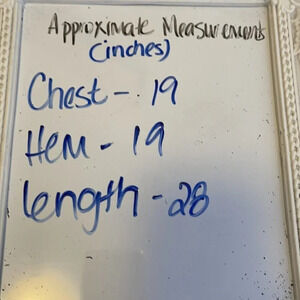 Approximate Measurements
(inches)
Chest - 19
Hem - 19
length - 28